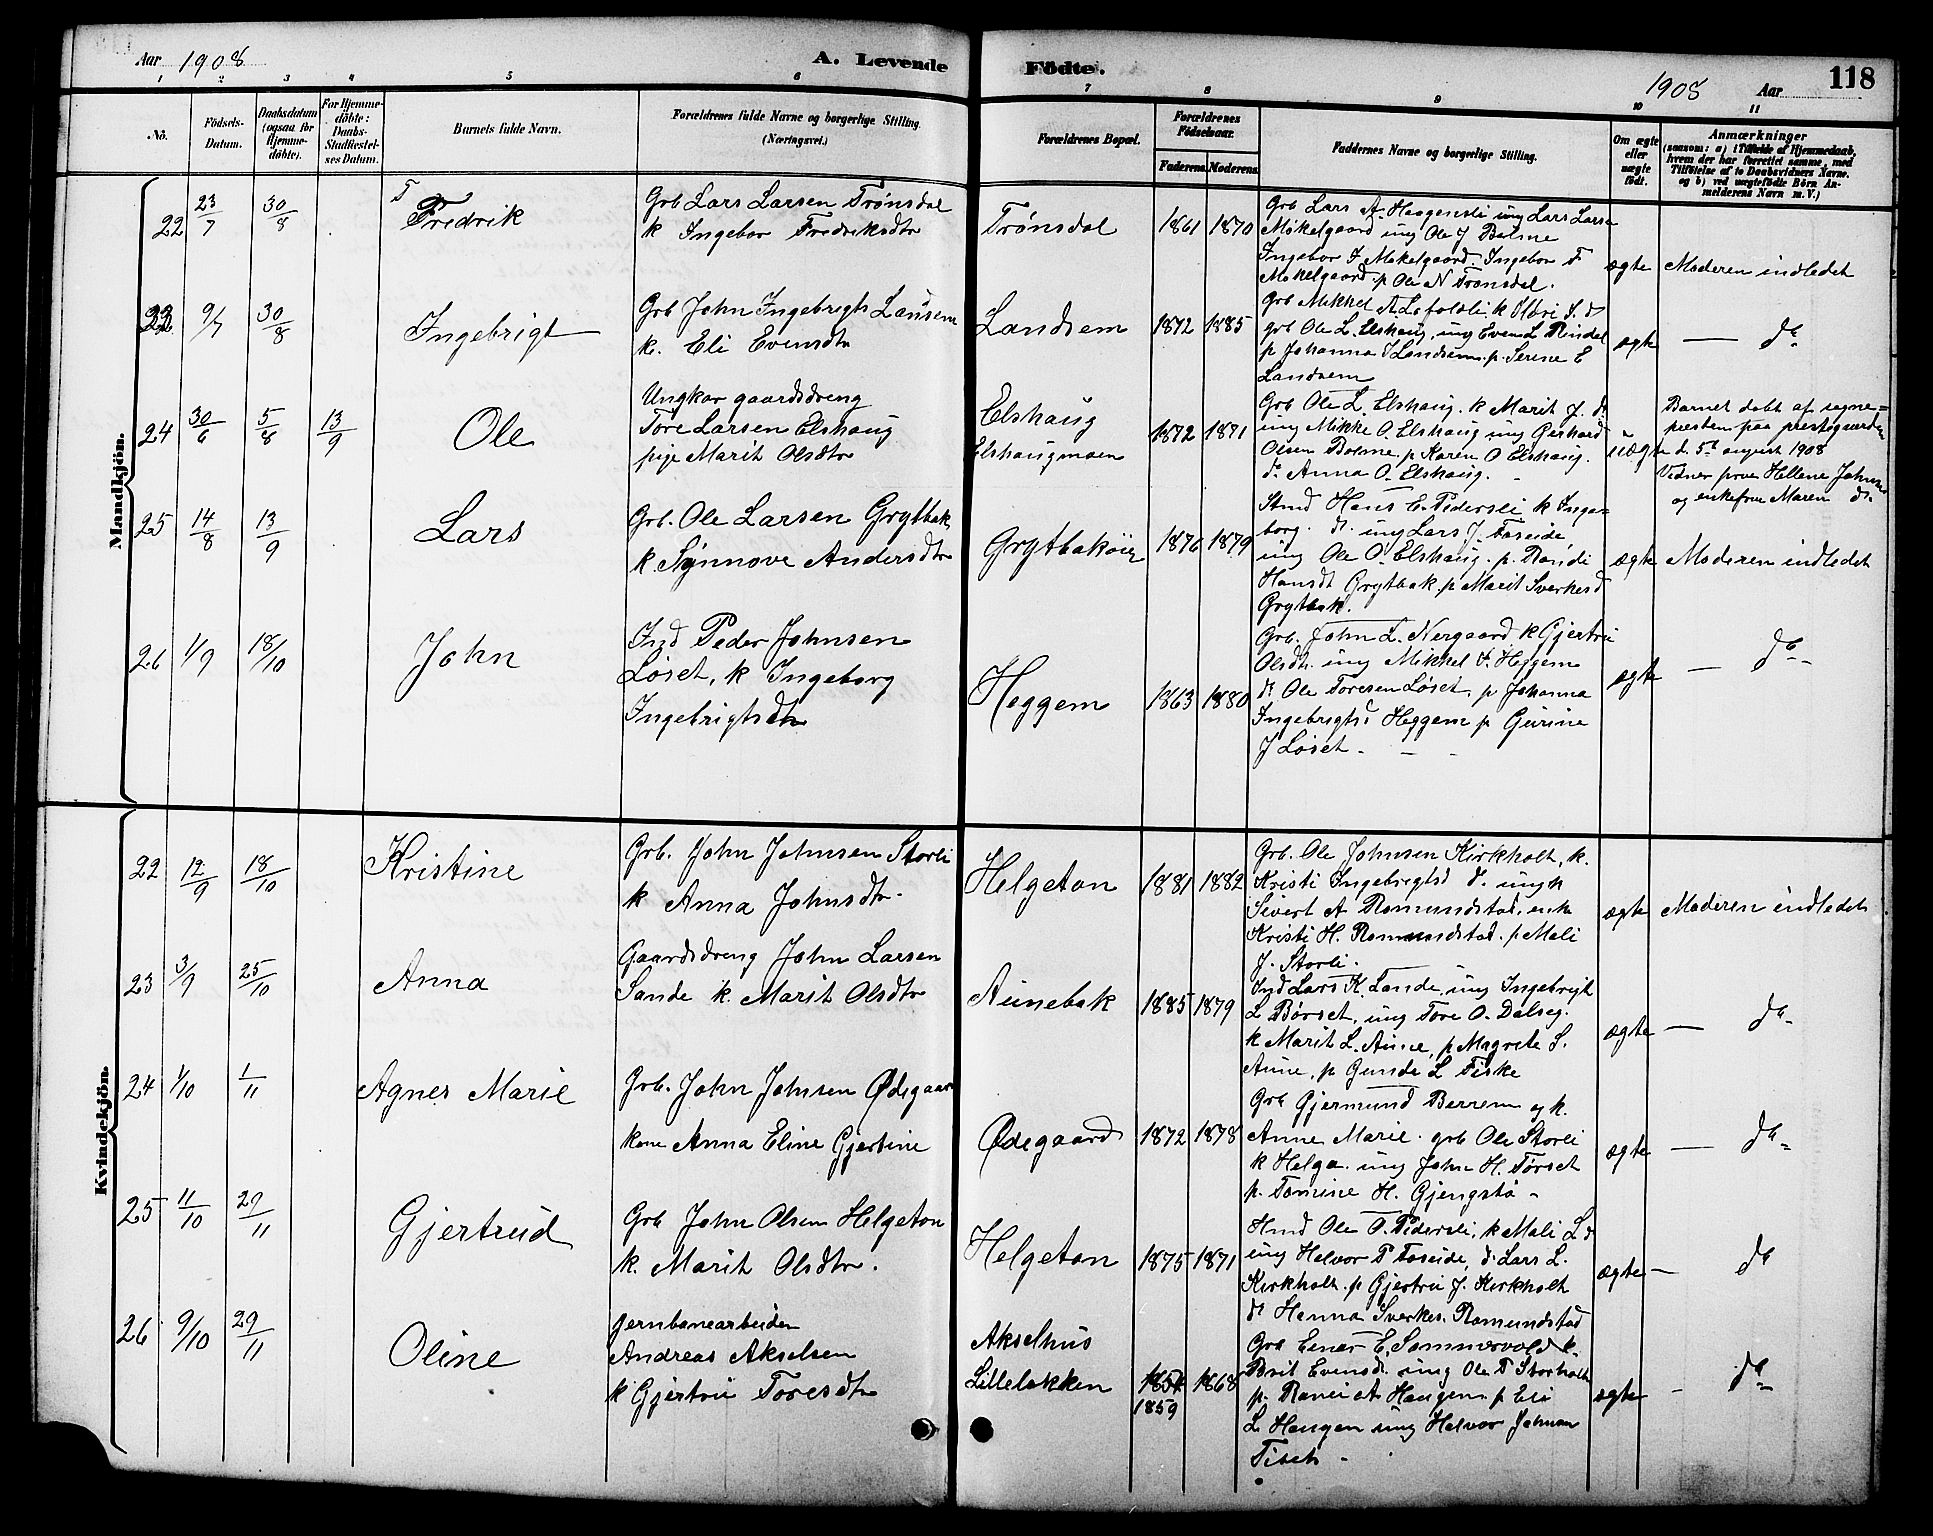 Aar 1908
A. Levende
Födte.
1908 Aar 118
1 2 3 4 5 6 7 8 9 10 11
No.
Födsels-
Datum.
Daabsdatum
(ogsaa for
Hjemme-
döbte).
For Hjemme-
döbte:
Daabs-
Stadfæstel-
ses Datum.
Barnets fulde Navn.
Forældrenes fulde Navne og borgerlige Stilling.
(Næringsvei.)
Forældrenes Bopæl.
Forældrenes
Födselsaar.
Faderens Moderens
Faddernes Navne og borgerlige Stilling.
Om ægte
eller
uægte
födt.
Anmærkninger
(saasom: a) i Tilfælde af Hjemmedaab,
hvem der har forrettet samme, med
Tilföielse af to Daabsvidners Navne,
og b) ved uægtefödte Börn An-
melderens Navn m. V.)
Mandkjön.
22 23/7 30/8
Fredrik
Grb Lars Larsen Trønsdal
k Ingebor Fredriksdtr
Trønsdal
1861 1870
Grb Lars A. Haagensli ung Lars Larse
Mikelgaard ung Ole J Bolme
Ingebor F Mikelgaard. Ingebor F
Mikelgaard. p Ole N Trønsdal.
ægte
Moderen indledet
23 9/7 30/8
Ingebrigt
Grb John Ingebrigts Landsem
k. Eli Evensdtr
Landsem
1872 1885
Grb Mikkel A. Lefoldli k
grb Ole L. Elshaug, ung Even L Rindal
p Johanna I Landsem. p. Serine E
Landsem
ægte
— do
24 30/6 5/8 13/9
Ole
Ungkar gaardsdreng
Tore Larsen Elshaug
pige Marit Olsdtr
Elshaug
Elshaugmoen
1872 1871
Grb Ole L. Elshaug. k Marit J. d
ung Mikke O. Elshaug ung Gerhard
Olsen Bolme. p Karen O Elshaug.
do Anna O. Elshaug.
uægte
Barnet døbt af sogne=
presten paa prestegaarden
d. 5t august 1908
Vidner frue Hellene Johnse
og enkefru Maren do.
25 14/8 13/9
Lars
Grb. Ole Larsen Grytbak
k. Synnove Andersdtr
Grytbakøien
1876 1879
Hans E. Pedersli k Inge-
borg. do. ung Lars J. Foseide,
ung Ole O. Elshaug. p. Randi
Hansdt Grytbak. p Marit Sverkesd
Grytbak.
ægte
Moderen indledet
26 1/9 18/10
John
Ind Peder Johnsen
Løset, k Ingeborg
Ingebrigtsdtr
Heggem
1863 1880
Grb. John L. Nergaard k Gjertru
Olsdt. ung Mikkel I. Heggem
do Ole Toresen Løset, p Johanna
Ingebrigtsd Heggem p Gurine
J Løset.
ægte
— do
Kvindekjön.
22 12/9 18/10
Kristine
Grb. John Johnsen Storli
k Anna Johnsdtr.
Helgeton
1881 1882
Grb. Ole Johnsen Kirkholt, k.
Kristi Ingebrigtsd do. ungk
Sivert A Romundstad, enke
Kristi H. Romundstad. p Mali
J. Storli.
ægte
Moderen indledet
23 3/9 25/10
Anna
Gaardsdreng John Larsen
Sande k. Marit Olsdtr
Aunebak
1885 1879
Ind Lars K. Sande, ung Ingebrigt
L Børset, ung Tore O. Dalseg.
k Marit L. Aune, p Magrete S.
Aune, p Gunda L Fiske
ægte
— do
24 1/10 1/11
Agnes Marie
Grb. John Johnsen Ødegaar
kone Anna Eline Gjertine
Ødegaard
1872 1878
Grb Gjermund Berrem og k.
Anne Marie. grb Ole Storli
k Helga. ung John H. Tørset
p. Tomine H. Gjengstø
ægte
— do
25 11/10 29/11
Gjertrud
Grb John Olsen Helgeton
k. Marit Olsdtr.
Helgeton
1875 1871
Hmd Ole O. Pedersli, k Mali L d
ung Halvor P Foseide, do Lars L.
Kirkholt. p Gjertru J. Kirkholt
do Hanna Sverkes. Romundstad
ægte
— do
26 9/10 29/11
Oline
jernbanearbeider
Andreas Akselsen
k Gjertru Toresdtr
Akselhus
Lilleløkken
1854 1868
1859
Grb Einar E. Sommervold k.
Brit Evensd. ung Ole T Storholt
p. Ranei A Haugen p Eli
L Haugen ung Halvor Johnsen
ægte
— do